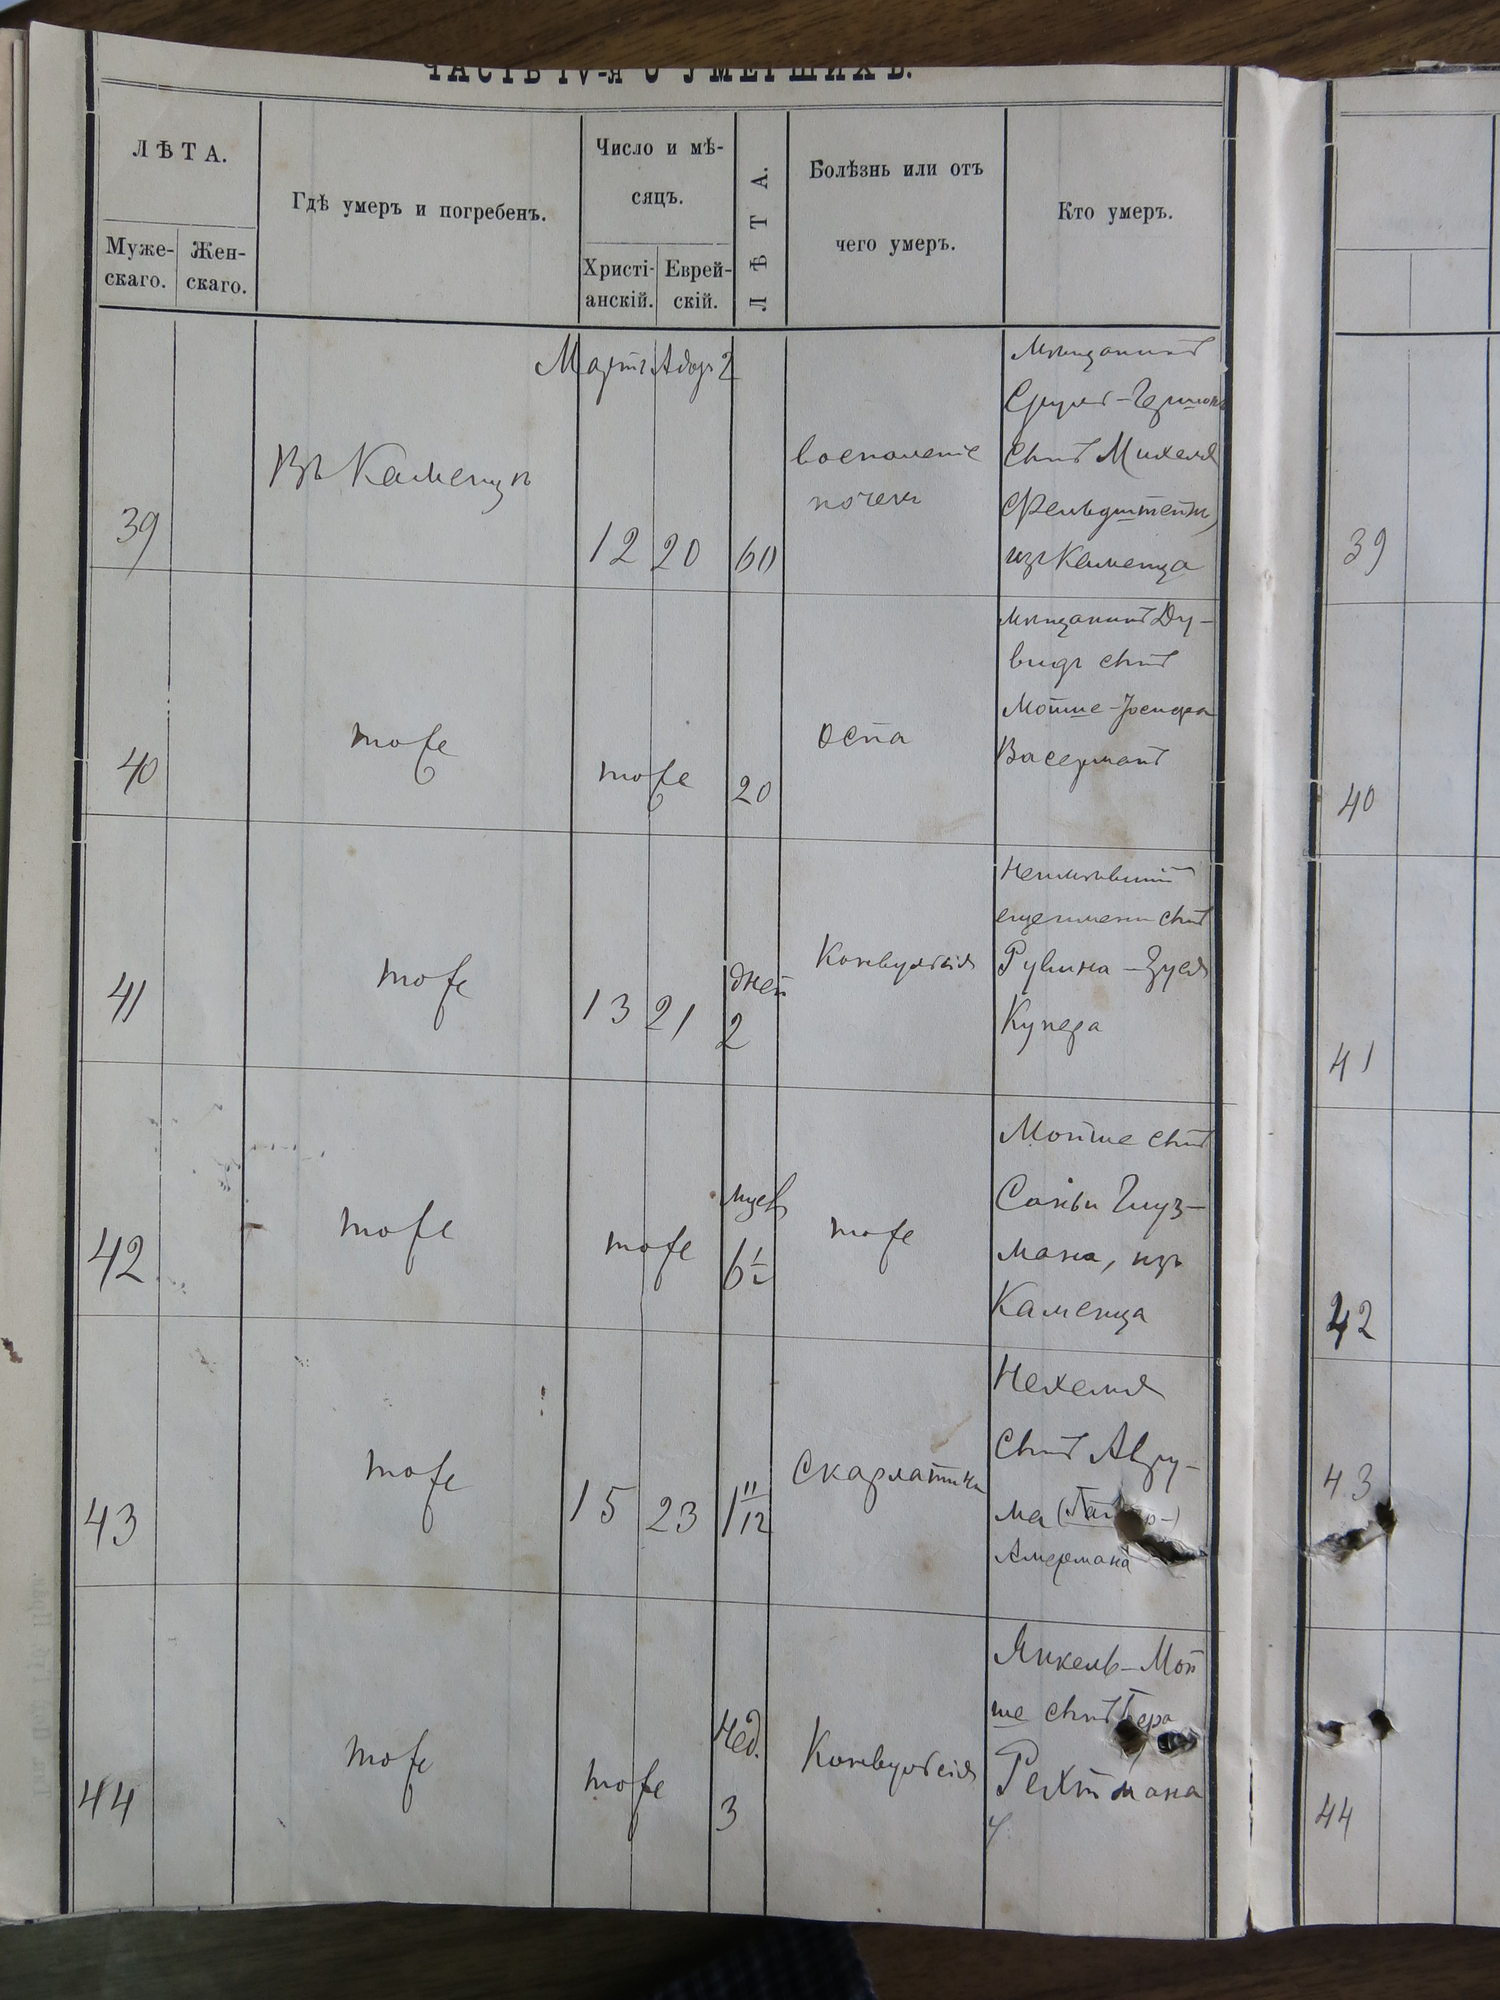 ЧАСТЬ IV-я О УМЕРШИХЪ.
ЛѢТА.
Муже-
скаго.
Жен-
скаго.
Гдѣ умеръ и погребенъ.
Число и мѣ-
сяцъ.
Христі-
анскій.
Еврей-
скій.
ЛѢТА.
Болѣзнь или отъ
чего умеръ.
Кто умеръ.
Мартъ Адаръ 2
39
Въ Каменцѣ
12 20 60
воспаленіе
почекъ
мѣщанинъ
Сруль-Гершонъ
сынъ Михеля
Фельдштейнъ,
изъ Каменца
39
40
тоже
тоже
20
оспа
мѣщанинъ Ду-
видъ сынъ
Мойше-Іосифа
Васерманъ
40
41
тоже
13 21
дней
2
Конвульсія
Неимѣвшій
еще имени сынъ
Рувина-Зуся
Купера
41
42
тоже
тоже
мцев
6 1/2
тоже
Мойше сынъ
Глуз-
мана, изъ
Каменца
42
43
тоже
15 23 1 11/12
Скарлатина
Нехемія
сынъ Авру-
ма
43
44
тоже
тоже
Нед.
3
Конвульсія
Янкель-Мой
ше сынъ Бера
Рейхтмана
44